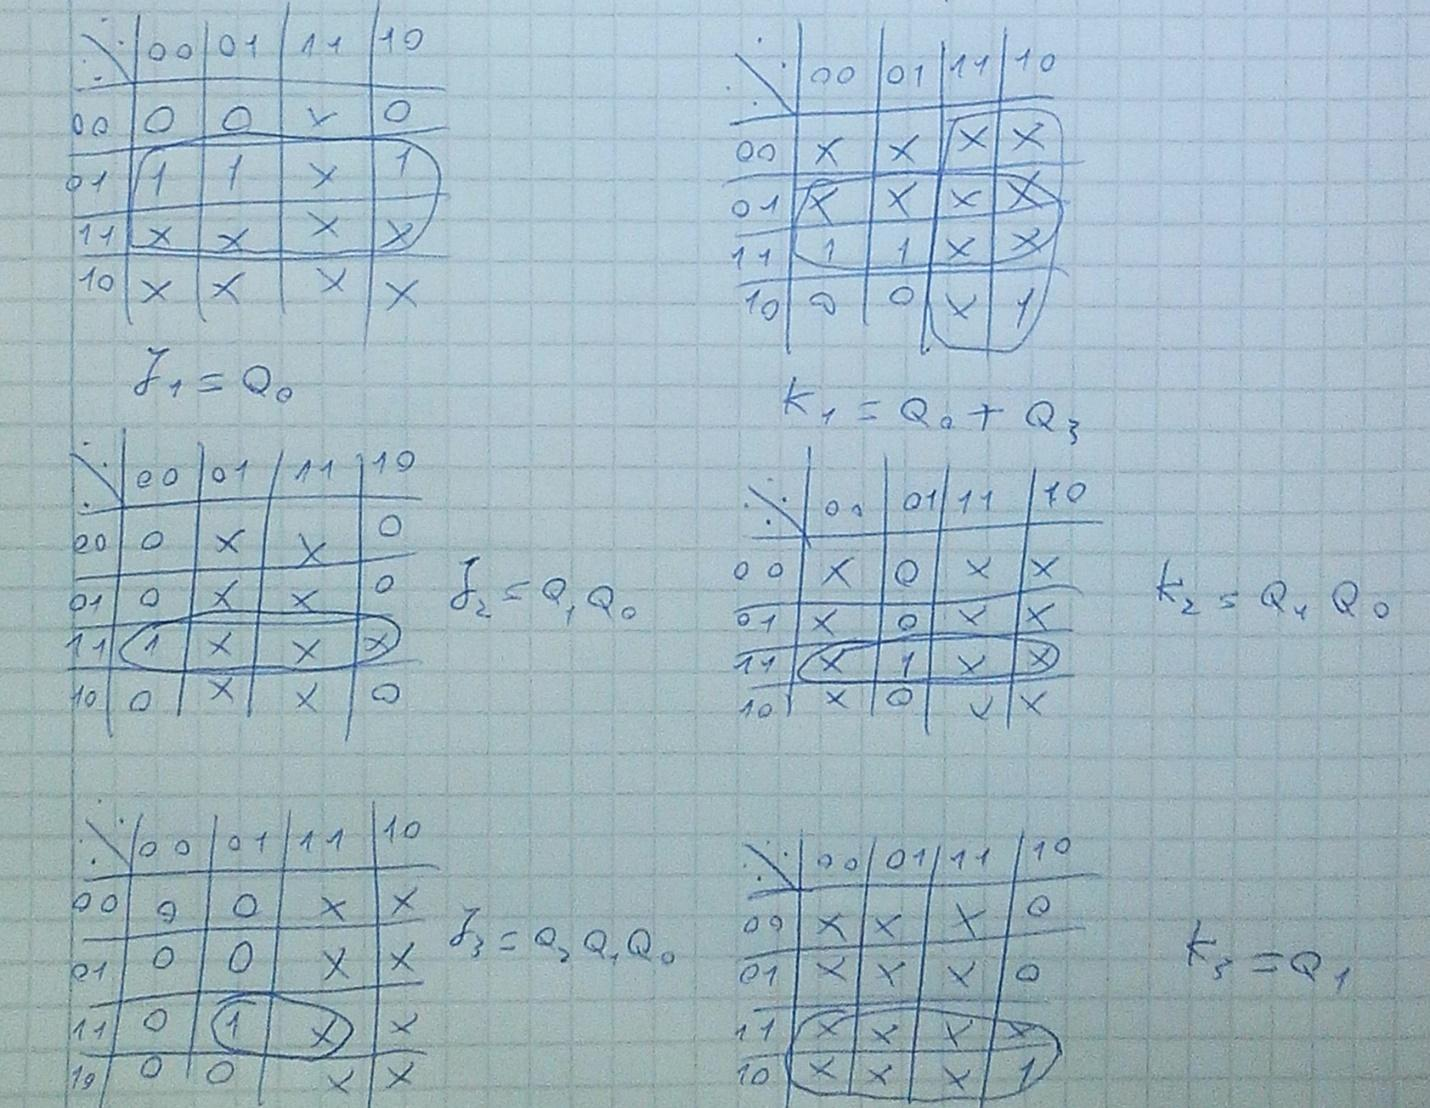 00 01 11 10
00 0 0 x 0
01 1 1 x 1
11 x x x x
10 x x x x
J1 = Q0
00 01 11 10
00 x x x x
01 x x x x
11 1 1 x x
10 0 0 x 1
K1 = Q0 + Q3
00 01 11 10
00 0 x x 0
01 0 x x 0
11 1 x x x
10 0 x x 0
J2 = Q1 Q0
00 01 11 10
00 x 0 x x
01 x 0 x x
11 x 1 x x
10 x 0 x x
K2 = Q1 Q0
00 01 11 10
00 0 0 x x
01 0 0 x x
11 0 1 x x
10 0 0 x x
J3 = Q2 Q1 Q0
00 01 11 10
00 x x x 0
01 x x x 0
11 x x x x
10 x x x 1
K3 = Q1